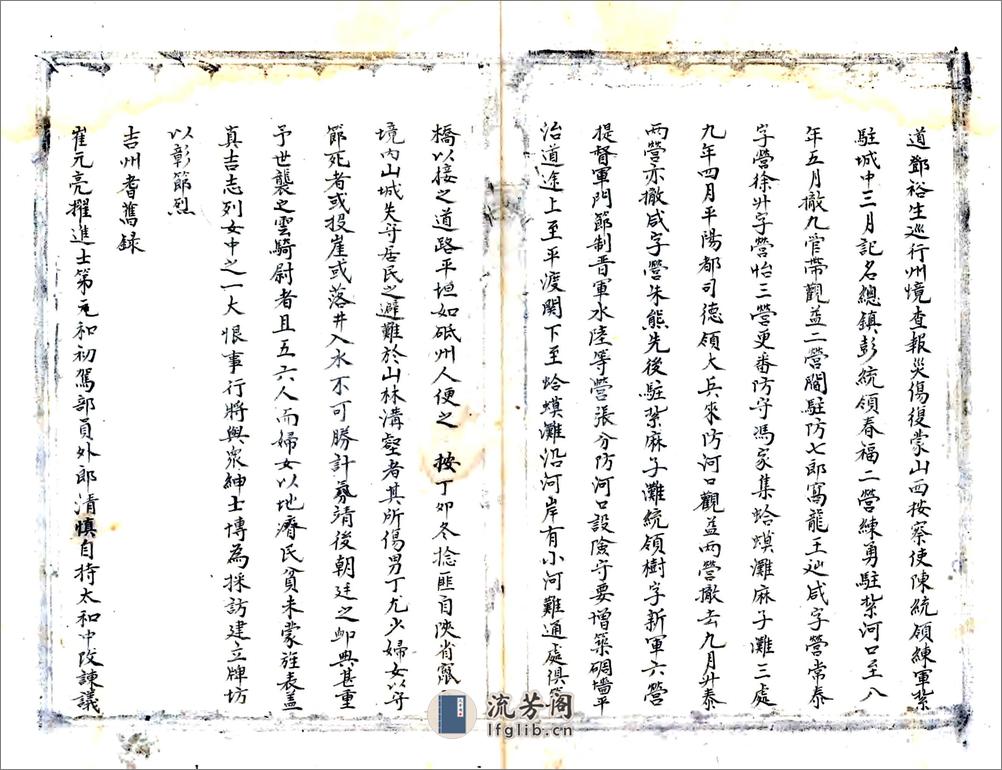 道鄧裕生巡行州境查報災傷復蒙山西按察使陳統領練軍紥
駐城中三月記名總鎮彭統領春福二營練勇駐紥河口至八
年五月撤九管帶觀益二營閻駐防七郎窩龍王辿咸字營常泰
字營徐升字營怡三營更番防守馮家集蛤蟆灘麻子灘三處
九年四月平陽都司德領大兵來防河口觀益兩營撤去九月升泰
兩營亦撤咸字營朱熊先後駐紥麻子灘統領樹字新軍六營
提督軍門節制晋軍水陸等營張分防河口設險守要增築碉墻平
治道途上至平渡関下至蛤蟆灘沿河岸有小河難通處俱
橋以接之道路平坦如砥州人便之 按丁卯冬捻匪自陝省竄
境内山城失守居民之避難於山林溝壑者其所傷男丁尤少婦女以守
節死者或投崖或落井入水不可勝計氛靖後朝廷之卹典甚重
予世襲之雲騎尉者且五六人而婦女以地瘠民貧未蒙旌表盖
真吉志列女中之一大恨事行將與衆紳士博為採訪建立牌坊
以彰節烈
吉州耆舊録
崔元亮擢進士第元和初駕部員外郎清慎自持太和中改諫議
流芳阁
lfglib.cn